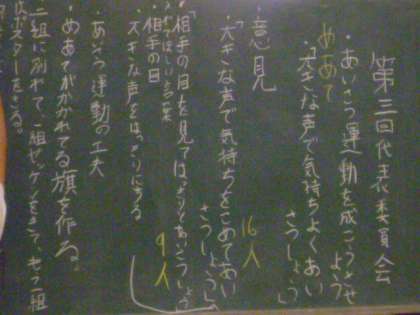 第三回代表委員会
・あいさつ運動を成こうさせよう
めあて
・「大きな声で気持ちよくあいさつしよう」
・意見
・「大きな声で気持ちをこめてあいさつしよう」
16人
・「相手の目を見てはっきりとあいさつしよう」
9人
・相手の目
・大きな声をはっきりにする
・あいさつ運動の工夫
・めあてがかかれてる旗を作る。
二組に別れて、一組ゼッケンをきて、もう一組
はポスターをもる。